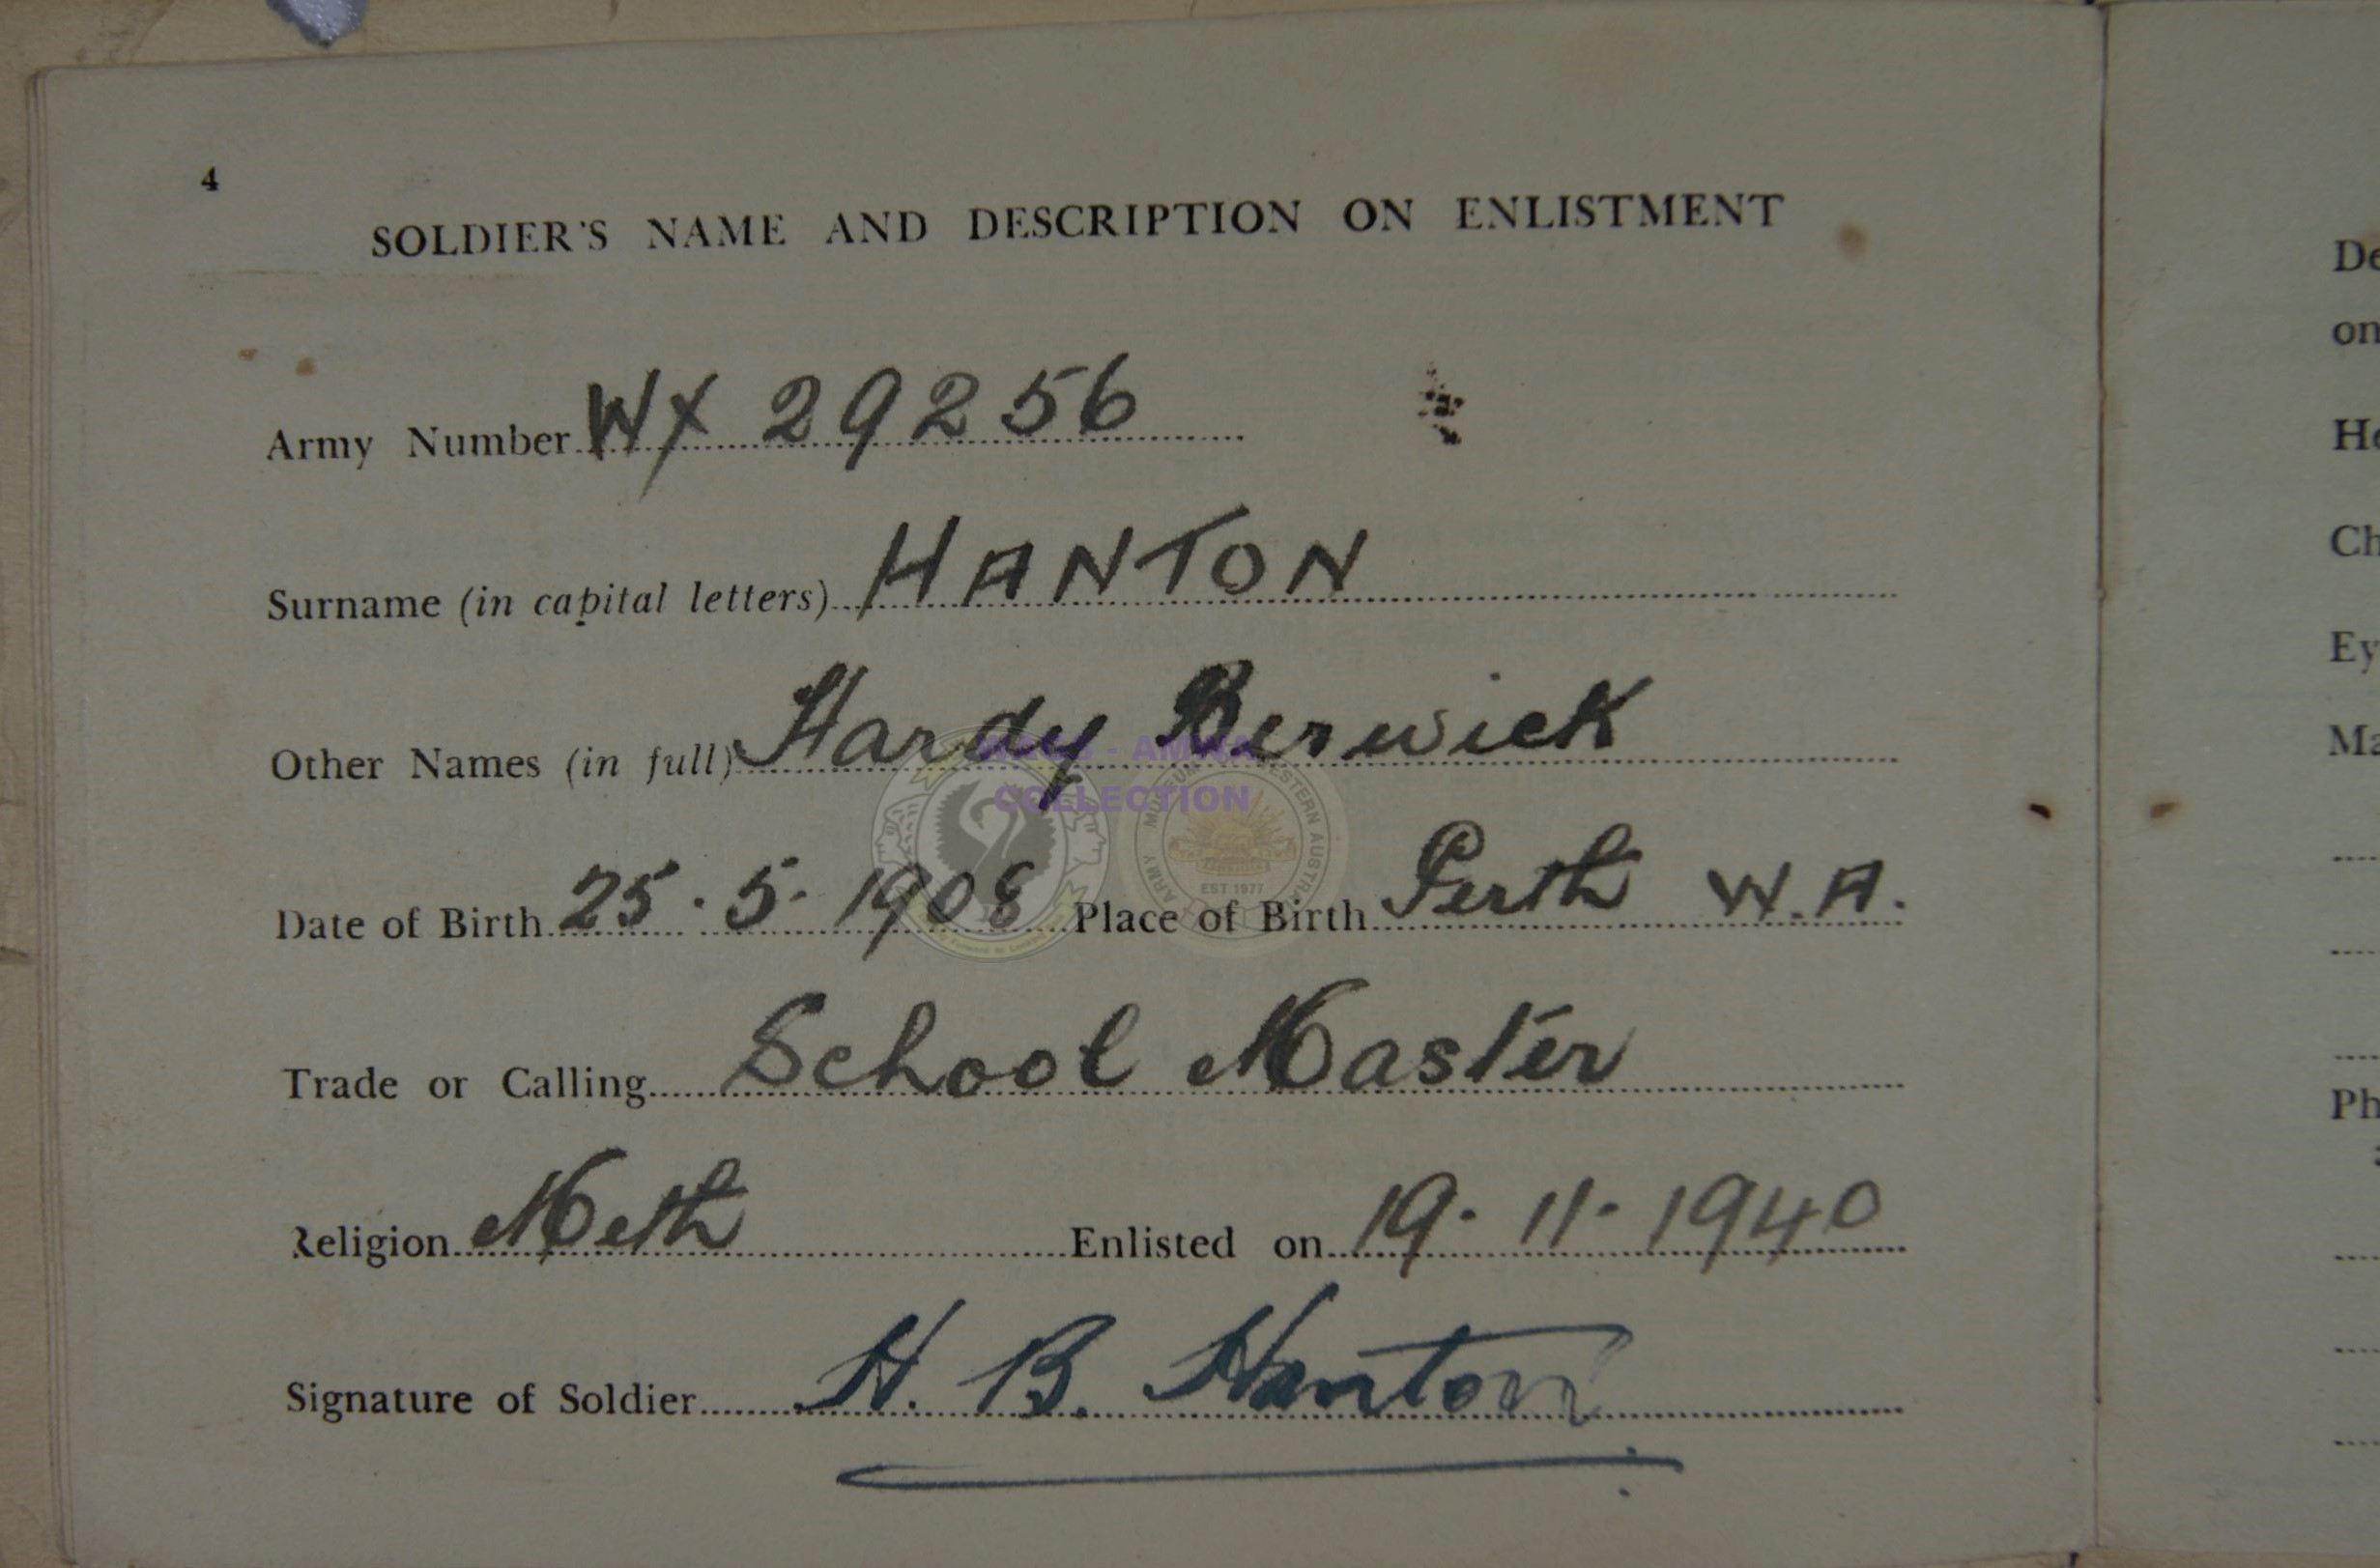 4
SOLDIER'S NAME AND DESCRIPTION ON ENLISTMENT
Army Number WX 29256
Surname (in capital letters) HANTON
Other Names (in full) Hardy Berwick
COLLECTION
Date of Birth 25.5.1908 Place of Birth Perth W.A.
EST 1977
Trade or Calling School Master
Religion Meth Enlisted on 19.11.1940
Signature of Soldier H. B. Hanton
De
on
He
Ch
Ey
Ma
Ph